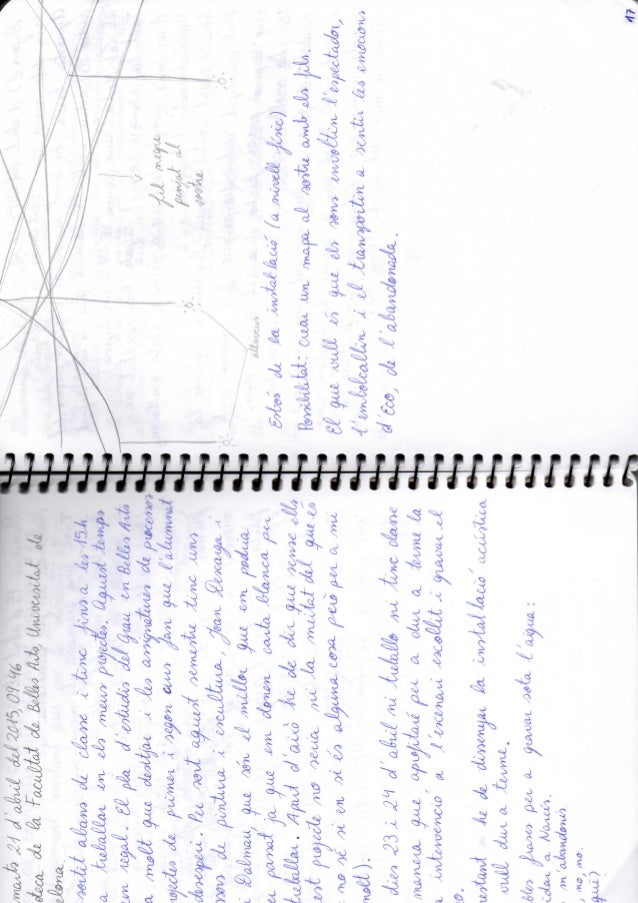 marts 21 d'abril del 2015, 09:46
teca de la Facultat de Belles Arts, Universitat de
elona.
sortit abans de classe i tinc fins a les 15h
a treballar en els meus projectes. Aquest temps
un regal. El pla d'estudis del Grau en Belles Arts
a molt que desitjar i les assignatures de processos
rojectes de primer i segon curs fan que l'alumnat
desesperi. Per sort aquest semestre tinc uns
ssors de pintura i escultura, Joan
i Dalmau, que són el millor que em podria
er passat ja que em donen carta blanca per
treballar. Apart d'això he de dir que sense ells
est projecte no seria ni la meitat del que és
no sé si en si és alguna cosa però per a mi
molt).
dies 23 i 24 d'abril ni treballo ni tinc classe
manera que aprofitaré per a dur a terme la
a intervenció a l'escenari escollit i gravar el
o.
restant he de dissenyar la instal·lació acústica
vull dur a terme.
bles frases per a gravar sota l'aigua:
idar a Narcís.
m'abandonis.
, no, no.
quí)
fil negre
penjat al
sostre
altaveus
Esbós de la instal·lació (a nivell físic)
Possibilitat: crear un mapa al sostre amb els fils.
El que vull és que els sons envoltin l'espectador,
l'embolcallin i el transportin a sentir les emocions
d'Eco, de l'abandonada.
17